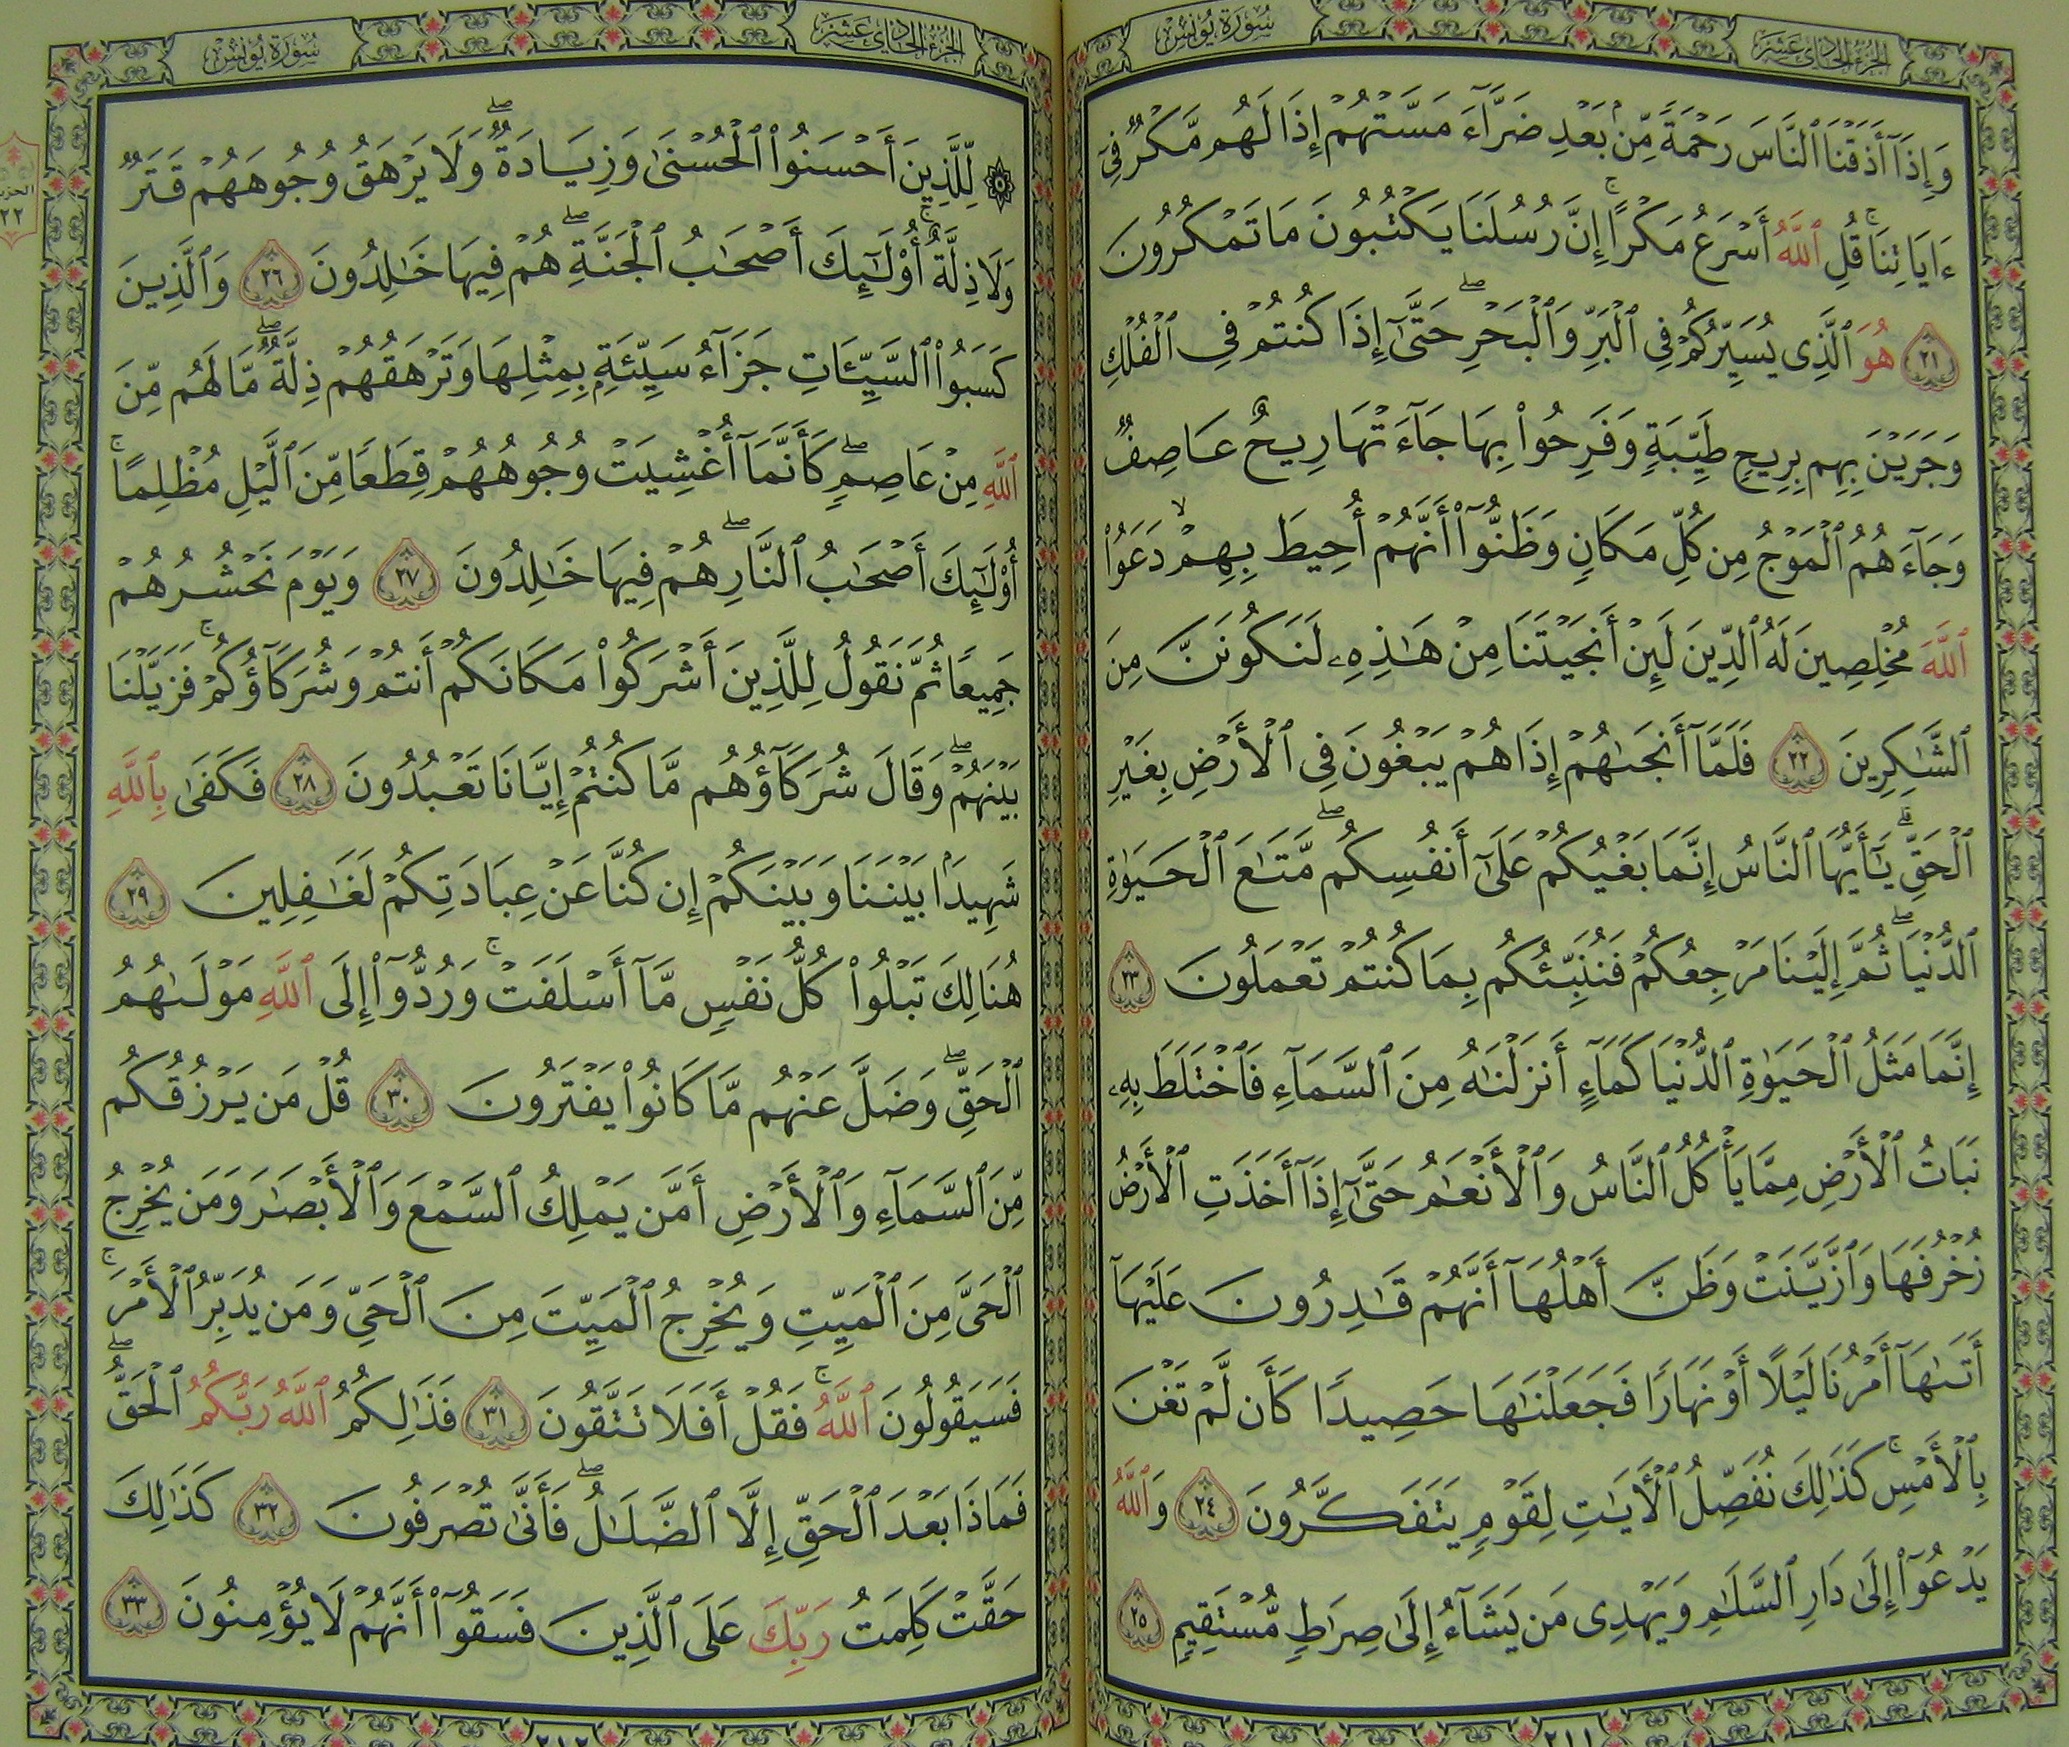 الجزء الحادي عشر
سورة يونس
وَإِذَآ أَذَقْنَا ٱلنَّاسَ رَحْمَةً مِّنۢ بَعْدِ ضَرَّآءَ مَسَّتْهُمْ إِذَا لَهُم مَّكْرٌ فِىٓ
ءَايَاتِنَا ۚ قُلِ ٱللَّهُ أَسْرَعُ مَكْرًا ۚ إِنَّ رُسُلَنَا يَكْتُبُونَ مَا تَمْكُرُونَ
٢١ هُوَ ٱلَّذِى يُسَيِّرُكُمْ فِى ٱلْبَرِّ وَٱلْبَحْرِ ۖ حَتَّىٰٓ إِذَا كُنتُمْ فِى ٱلْفُلْكِ
وَجَرَيْنَ بِهِم بِرِيحٍ طَيِّبَةٍ وَفَرِحُوا۟ بِهَا جَآءَتْهَا رِيحٌ عَاصِفٌ
وَجَآءَهُمُ ٱلْمَوْجُ مِن كُلِّ مَكَانٍ وَظَنُّوٓا۟ أَنَّهُمْ أُحِيطَ بِهِمْ ۙ دَعَوُا۟
ٱللَّهَ مُخْلِصِينَ لَهُ ٱلدِّينَ لَئِنْ أَنجَيْتَنَا مِنْ هَـٰذِهِۦ لَنَكُونَنَّ مِنَ
ٱلشَّـٰكِرِينَ ٢٢ فَلَمَّآ أَنجَىٰهُمْ إِذَا هُمْ يَبْغُونَ فِى ٱلْأَرْضِ بِغَيْرِ
ٱلْحَقِّ ۗ يَـٰٓأَيُّهَا ٱلنَّاسُ إِنَّمَا بَغْيُكُمْ عَلَىٰٓ أَنفُسِكُم ۖ مَّتَـٰعَ ٱلْحَيَوٰةِ
ٱلدُّنْيَا ۖ ثُمَّ إِلَيْنَا مَرْجِعُكُمْ فَنُنَبِّئُكُم بِمَا كُنتُمْ تَعْمَلُونَ ٢٣
إِنَّمَا مَثَلُ ٱلْحَيَوٰةِ ٱلدُّنْيَا كَمَآءٍ أَنزَلْنَـٰهُ مِنَ ٱلسَّمَآءِ فَٱخْتَلَطَ بِهِۦ
نَبَاتُ ٱلْأَرْضِ مِمَّا يَأْكُلُ ٱلنَّاسُ وَٱلْأَنْعَـٰمُ حَتَّىٰٓ إِذَآ أَخَذَتِ ٱلْأَرْضُ
زُخْرُفَهَا وَٱزَّيَّنَتْ وَظَنَّ أَهْلُهَآ أَنَّهُمْ قَـٰدِرُونَ عَلَيْهَآ
أَتَىٰهَآ أَمْرُنَا لَيْلًا أَوْ نَهَارًا فَجَعَلْنَـٰهَا حَصِيدًا كَأَن لَّمْ تَغْنَ
بِٱلْأَمْسِ ۚ كَذَٰلِكَ نُفَصِّلُ ٱلْـَٔايَـٰتِ لِقَوْمٍ يَتَفَكَّرُونَ ٢٤ وَٱللَّهُ
يَدْعُوٓا۟ إِلَىٰ دَارِ ٱلسَّلَـٰمِ وَيَهْدِى مَن يَشَآءُ إِلَىٰ صِرَٰطٍ مُّسْتَقِيمٍ ٢٥
٢١١
الجزء الحادي عشر
سورة يونس
۞ لِّلَّذِينَ أَحْسَنُوا۟ ٱلْحُسْنَىٰ وَزِيَادَةٌ ۖ وَلَا يَرْهَقُ وُجُوهَهُمْ قَتَرٌ
وَلَا ذِلَّةٌ ۚ أُو۟لَـٰٓئِكَ أَصْحَـٰبُ ٱلْجَنَّةِ ۖ هُمْ فِيهَا خَـٰلِدُونَ ٢٦ وَٱلَّذِينَ
كَسَبُوا۟ ٱلسَّيِّـَٔاتِ جَزَآءُ سَيِّئَةٍۭ بِمِثْلِهَا وَتَرْهَقُهُمْ ذِلَّةٌ ۖ مَّا لَهُم مِّنَ
ٱللَّهِ مِنْ عَاصِمٍ ۖ كَأَنَّمَآ أُغْشِيَتْ وُجُوهُهُمْ قِطَعًا مِّنَ ٱلَّيْلِ مُظْلِمًا ۚ
أُو۟لَـٰٓئِكَ أَصْحَـٰبُ ٱلنَّارِ ۖ هُمْ فِيهَا خَـٰلِدُونَ ٢٧ وَيَوْمَ نَحْشُرُهُمْ
جَمِيعًا ثُمَّ نَقُولُ لِلَّذِينَ أَشْرَكُوا۟ مَكَانَكُمْ أَنتُمْ وَشُرَكَآؤُكُمْ ۚ فَزَيَّلْنَا
بَيْنَهُمْ ۖ وَقَالَ شُرَكَآؤُهُم مَّا كُنتُمْ إِيَّانَا تَعْبُدُونَ ٢٨ فَكَفَىٰ بِٱللَّهِ
شَهِيدًۢا بَيْنَنَا وَبَيْنَكُمْ إِن كُنَّا عَنْ عِبَادَتِكُمْ لَغَـٰفِلِينَ ٢٩
هُنَالِكَ تَبْلُوا۟ كُلُّ نَفْسٍ مَّآ أَسْلَفَتْ ۚ وَرُدُّوٓا۟ إِلَى ٱللَّهِ مَوْلَىٰهُمُ
ٱلْحَقِّ ۖ وَضَلَّ عَنْهُم مَّا كَانُوا۟ يَفْتَرُونَ ٣٠ قُلْ مَن يَرْزُقُكُم
مِّنَ ٱلسَّمَآءِ وَٱلْأَرْضِ أَمَّن يَمْلِكُ ٱلسَّمْعَ وَٱلْأَبْصَـٰرَ وَمَن يُخْرِجُ
ٱلْحَىَّ مِنَ ٱلْمَيِّتِ وَيُخْرِجُ ٱلْمَيِّتَ مِنَ ٱلْحَىِّ وَمَن يُدَبِّرُ ٱلْأَمْرَ ۚ
فَسَيَقُولُونَ ٱللَّهُ ۚ فَقُلْ أَفَلَا تَتَّقُونَ ٣١ فَذَٰلِكُمُ ٱللَّهُ رَبُّكُمُ ٱلْحَقُّ ۖ
فَمَاذَا بَعْدَ ٱلْحَقِّ إِلَّا ٱلضَّلَـٰلُ ۖ فَأَنَّىٰ تُصْرَفُونَ ٣٢ كَذَٰلِكَ
حَقَّتْ كَلِمَتُ رَبِّكَ عَلَى ٱلَّذِينَ فَسَقُوٓا۟ أَنَّهُمْ لَا يُؤْمِنُونَ ٣٣
٢١٢
الحزب
٢٢